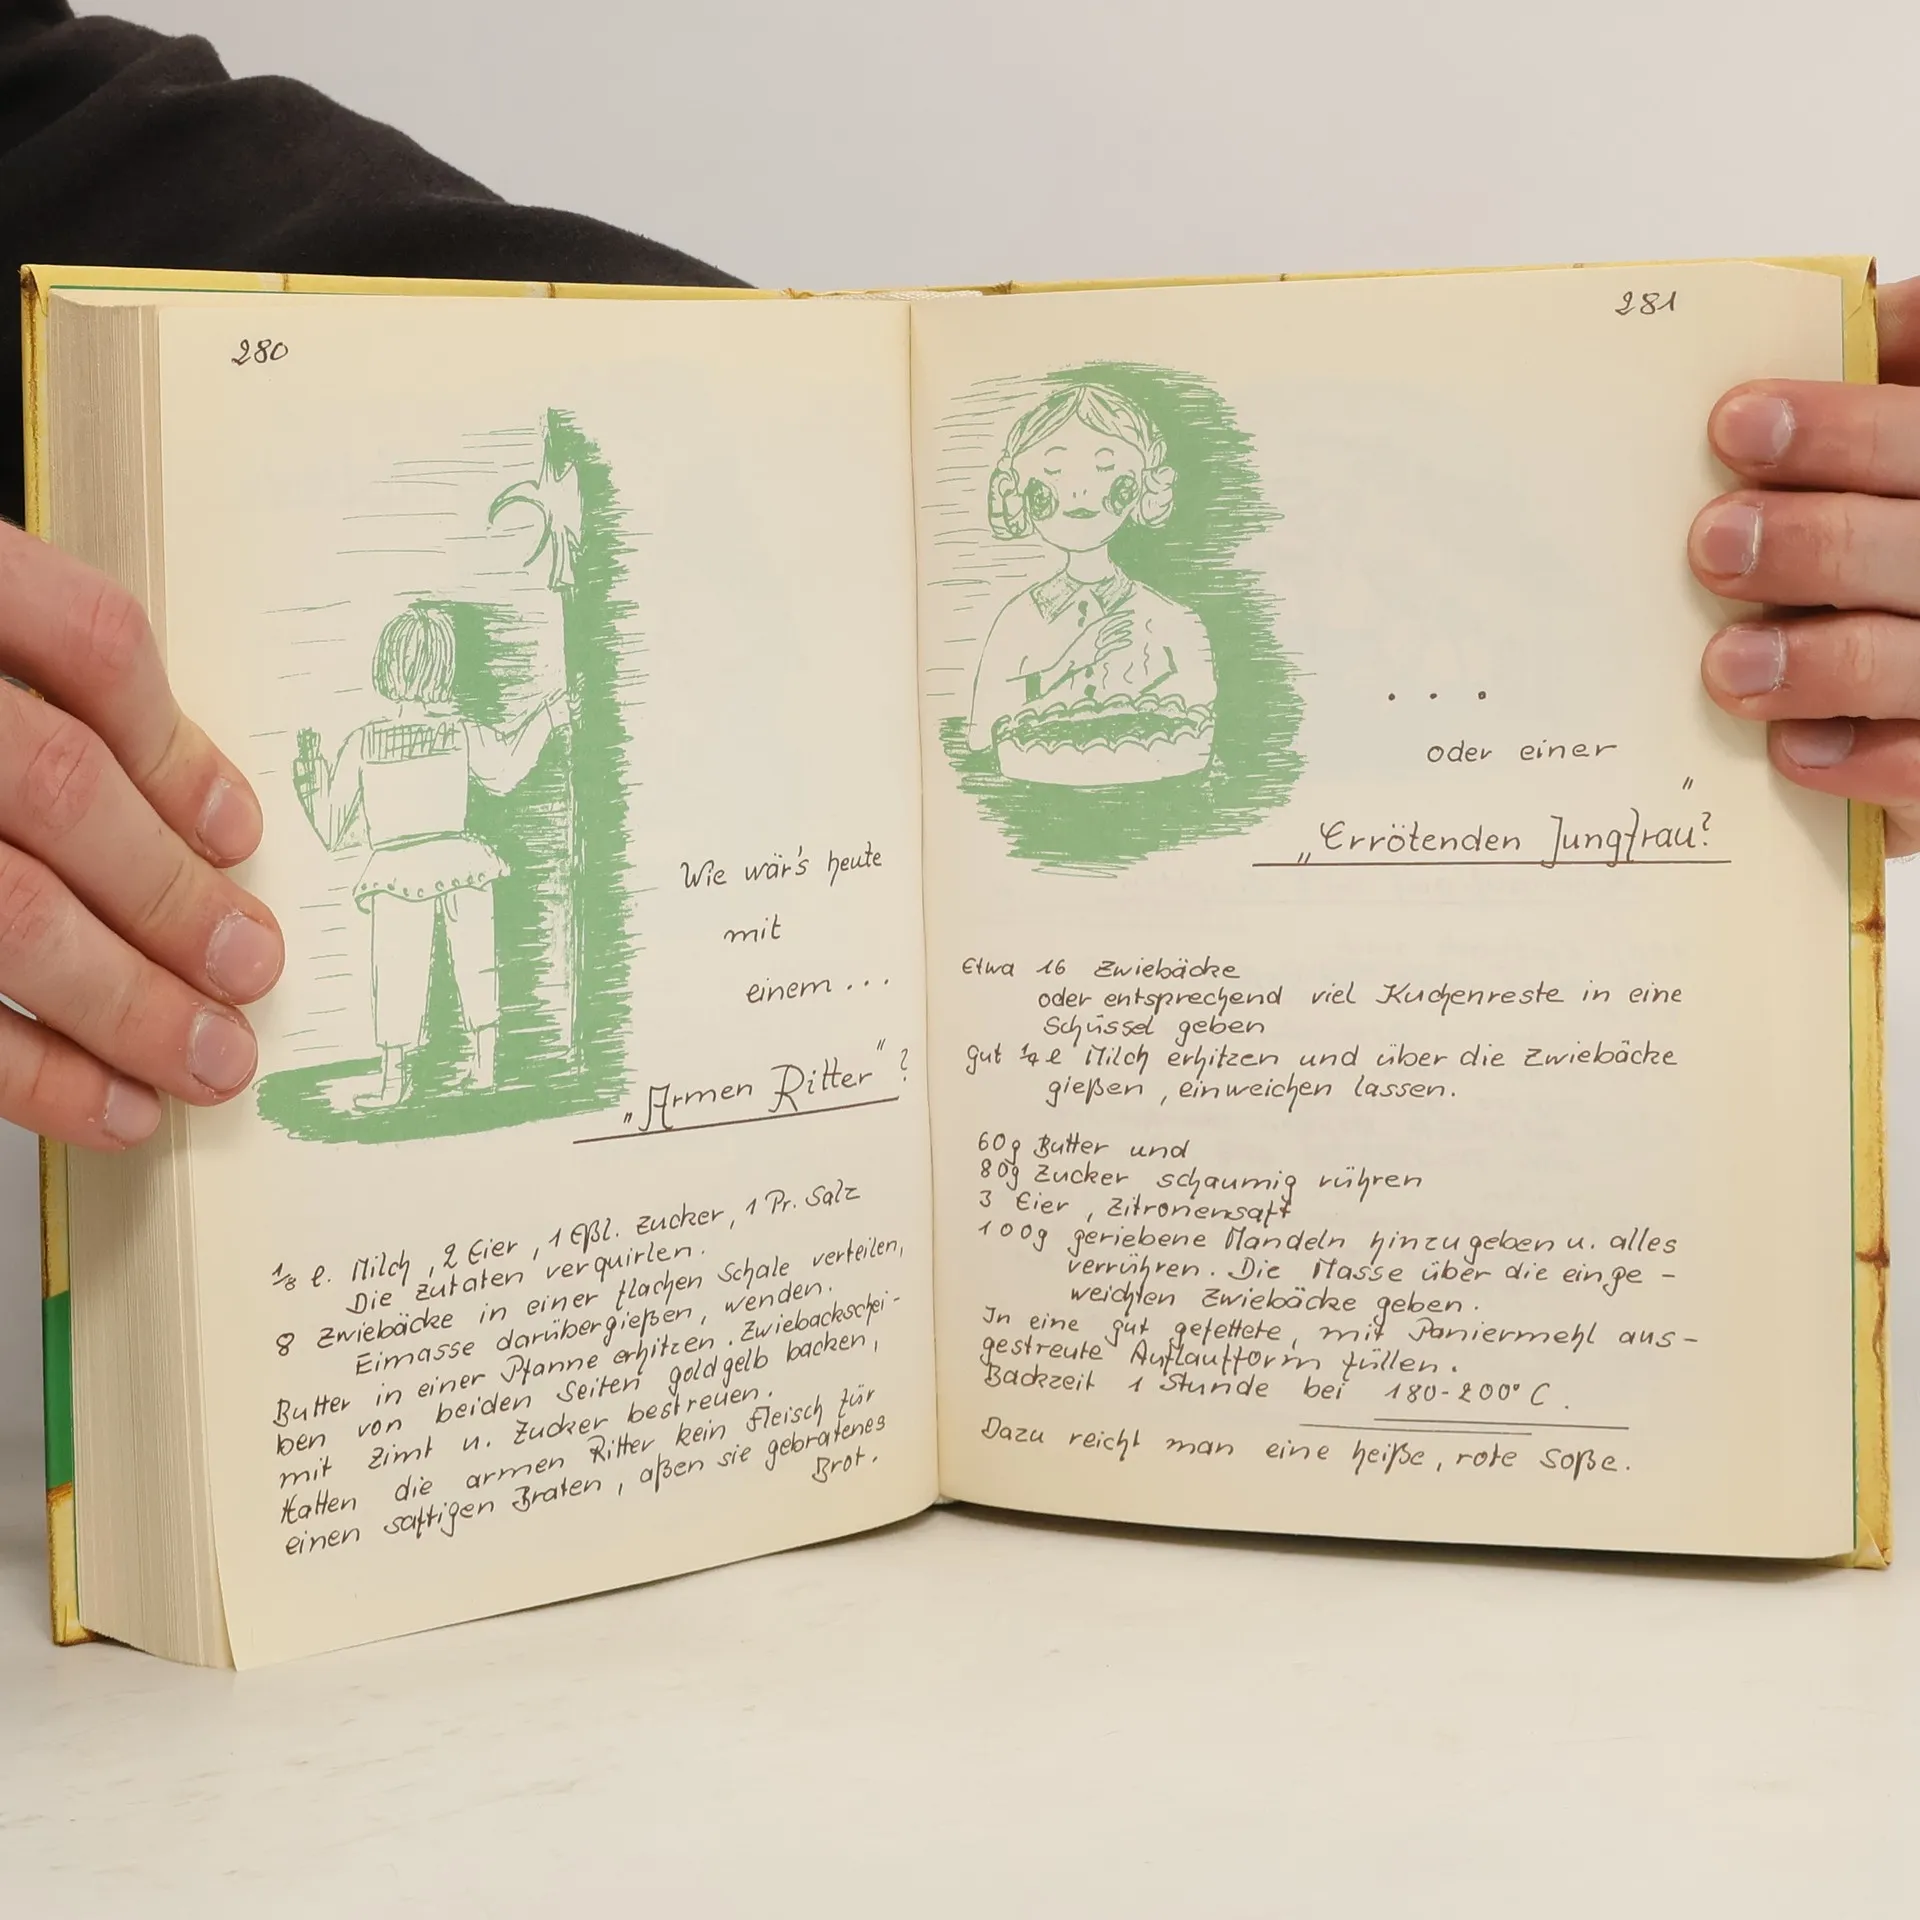 280
Wie wär's heute
mit
einem...
„Armen Ritter"?
1/8 l. Milch, 2 Eier, 1 Eßl. Zucker, 1 Pr. Salz
Die Zutaten verquirlen.
8 Zwiebäcke in einer flachen Schale verteilen,
Eimasse darübergießen, wenden.
Butter in einer Pfanne erhitzen. Zwiebackschei-
ben von beiden Seiten goldgelb backen,
mit Zimt u. Zucker bestreuen.
Hatten die armen Ritter kein Fleisch für
einen saftigen Braten, aßen sie gebratenes
Brot.
281
...
oder einer
„Errötenden Jungfrau"?
Etwa 16 Zwiebäcke
oder entsprechend viel Kuchenreste in eine
Schüssel geben
gut 1/4 l Milch erhitzen und über die Zwiebäcke
gießen, einweichen lassen.
60g Butter und
80g Zucker schaumig rühren
3 Eier, Zitronensaft
100g geriebene Mandeln hinzugeben u. alles
verrühren. Die Masse über die einge-
weichten Zwiebäcke geben.
In eine gut gefettete, mit Paniermehl aus-
gestreute Auflaufform füllen.
Backzeit 1 Stunde bei 180-200° C.
Dazu reicht man eine heiße, rote Soße.